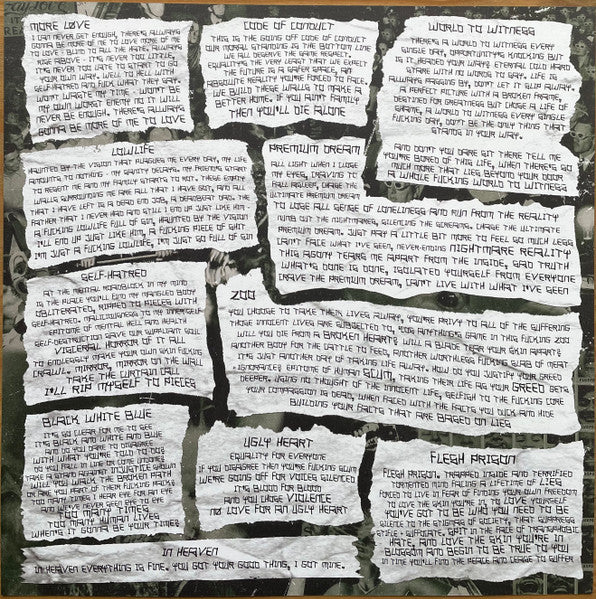 MORE LOVE
I CAN NEVER GET ENOUGH, THERE'S ALWAYS
GONNA BE MORE OF ME TO LOVE MORE OF ME
TO LOVE - BLIND TO ALL THE HATE. ALWAYS
RISE ABOVE - IT'S NEVER TOO LITTLE,
IT'S NEVER TOO LATE TO START TO GO
YOUR OWN WAY. WELL TO HELL WITH
SELF-HATRED AND FUCK WHAT THEY SAY.
DON'T WASTE MY TIME. WON'T BE
MY OWN WORST ENEMY NO IT WILL
NEVER BE ENOUGH. THERE'S ALWAYS
GONNA BE MORE OF ME TO LOVE
CODE OF CONDUCT
THIS IS THE GOING OFF CODE OF CONDUCT
OUR MORAL STANDING IS THE BOTTOM LINE
WE ALL DESERVE THE LEGAL
EQUALITY THE VERY LEAST THAT WE EXPECT
THE FUTURE IS A SAFER SPACE, AN
ABSOLUTE REALITY YOU'RE FORCED TO FACE.
WE BUILD THESE WALLS TO MAKE A
BETTER HOME. IF YOU AIN'T FAMILY
THEN YOU'LL DIE ALONE
WORLD TO WITNESS
THERE'S A WORLD TO WITNESS EVERY
SINGLE DAY, OPPORTUNITY'S KNOCKING BUT
IS IT HEADED YOUR WAY? ETERNAL COLD HARD
STARE WITH NO WORDS TO SAY. LIFE IS
ALWAYS PASSING BY, DON'T LET IT SLIP AWAY.
A PERFECT PICTURE WITH A BROKEN FRAME,
DESTINED FOR GREATNESS BUT CHOSE A LIFE OF
SHAME, A WORLD TO WITNESS EVERY SINGLE
FUCKING DAY, DON'T BE THE ONLY THING THAT
STANDS IN YOUR WAY.
AND DON'T YOU DARE SIT THERE TELL ME
YOU'RE BORED OF THIS LIFE, WHEN THERE'S SO
MUCH MORE THAT LIES BEYOND YOUR DOOR
A WHOLE FUCKING WORLD TO WITNESS
LOWLIFE
HAUNTED BY THE VISION THAT PLAGUES ME EVERY DAY, MY LIFE
AMOUNTS TO NOTHING - MY SANITY DECAYS. MY FRIENDS START
TO RESENT ME AND MY FAMILY STARTS TO ROT. THESE EMPTY
WALLS SURROUNDING ME ARE ALL THAT I HAVE GOT, AND ALL
THAT I HAVE LEFT IS A DEAD END JOB, A DEADBEAT DAD. THE
FATHER THAT I NEVER HAD AND STILL I END UP JUST LIKE HIM -
A FUCKING LOWLIFE FULL OF SIN, HAUNTED BY THE VISION
I'LL END UP JUST LIKE HIM, A FUCKING PIECE OF SHIT
I'M JUST A FUCKING LOWLIFE, I'M JUST SO FULL OF SIN
PREMIUM DREAM
ALL LIGHT WHEN I CLOSE
MY EYES, CRAVING TO
FALL ASLEEP, CHASE THE
ULTIMATE PREMIUM DREAM
TO LOSE ALL SENSE OF LONELINESS AND RUN FROM THE REALITY
NUMB OUT THE NIGHTMARES, SILENCING THE SCREAMS. CHASE THE ULTIMATE
PREMIUM DREAM. JUST PAY A LITTLE BIT MORE TO FEEL SO MUCH LESS
CAN'T FACE WHAT I'VE SEEN, NEVER-ENDING NIGHTMARE REALITY
THIS AGONY TEARS ME APART FROM THE INSIDE, SAD TRUTH
WHAT'S DONE IS DONE, ISOLATED YOURSELF FROM EVERYONE
CRAVE THE PREMIUM DREAM, CAN'T LIVE WITH WHAT I'VE SEEN
SELF-HATRED
AT THE MENTAL ROADBLOCK IN MY MIND
IS THE PLACE YOU'LL FIND MY MANGLED BODY
OBLITERATED, RIPPED TO PIECES WITH
SELF-HATRED. MALICIOUSNESS TO MY INNER SELF
EPITOME OF MENTAL HELL AND HEALTH
SELF-DESTRUCTION GAVE OUR SUPPLIANT SOUL
VISCERAL HORROR OF IT ALL
TO ENDLESSLY MAKE YOUR OWN SKIN FUCKING
CRAWL. MIRROR, MIRROR ON THE WALL
TAKE THE CURTAIN CALL
I'LL RIP MYSELF TO PIECES
ZOO
YOU CHOOSE TO TAKE THEIR LIVES AWAY, YOU'RE PRIVY TO ALL OF THE SUFFERING
THOSE INNOCENT LIVES ARE SUBJECTED TO, 'COS ANYTHING'S GAME IN THIS FUCKING ZOO
WILL YOU DIE FROM A BROKEN HEART? WILL A BLADE TEAR YOUR SKIN APART?
ANOTHER BODY FOR THE CATTLE TO FEED, ANOTHER WORTHLESS FUCKING SLAB OF MEAT
IT'S JUST ANOTHER DAY OF TAKING LIFE AWAY. HOW DO YOU JUSTIFY YOUR GREED
- IGNORANCE? EPITOME OF HUMAN SCUM, TAKING THEIR LIFE AS YOUR GREED GETS
DEEPER. USING NO THOUGHT OF THE INNOCENT LIFE, SELFISH TO THE FUCKING CORE
YOUR COMPASSION IS DEAD, WHEN FACED WITH THE FACTS YOU DUCK AND HIDE
BUILDING YOUR FACTS THAT ARE BASED ON LIES
BLACK WHITE BLUE
IT'S SO CLEAR FOR ME TO SEE
IT'S BLACK AND WHITE AND BLUE
AND DO YOU DARE TO DISAGREE
WITH WHAT YOU'RE TOLD TO DO?
DO YOU FALL IN LINE OR COME UNDONE?
TAKE A STAND AGAINST INJUSTICE SHOWN
WILL YOU WALK THE BROKEN PATH
OR ARE YOU PART OF THEIR FUCKING PACK?
TOO MANY TIMES I HEAR EYE FOR AN EYE
AND WE'VE NEVER SEEN EYE TO EYE
TOO MANY TIMES
TOO MANY HUMAN LIVES
WHEN'S IT GONNA BE YOUR TIME?
UGLY HEART
EQUALITY FOR EVERYONE
IF YOU DISAGREE THEN YOU'RE FUCKING SCUM
WE'RE GOING OFF FOR VOICES SILENCED
IT'S BLOOD FOR BLOOD
AND YOU CHOSE VIOLENCE
NO LOVE FOR AN UGLY HEART
FLESH PRISON
FLESH PRISON. TRAPPED INSIDE AND TERRIFIED
TORMENTED MIND FACING A LIFETIME OF LIES
FORCED TO LIVE IN FEAR OF FINDING YOUR OWN FREEDOM
TO LOVE THE SKIN YOU'RE IN, TO LOVE YOURSELF
YOU'VE GOT TO BE WHO YOU NEED TO BE
SILENCE TO THE STIGMAS OF SOCIETY, THAT SUPPRESS
STIFLE - SUFFOCATE. SPIT IN THE FACE OF TRANSPHOBIC
HATE, AND LOVE THE SKIN YOU'RE IN
BLOSSOM AND BEGIN TO BE TRUE TO YOU
IN TIME YOU'LL FIND THE PEACE AND CEASE TO SUFFER
IN HEAVEN
IN HEAVEN EVERYTHING IS FINE. YOU GOT YOUR GOOD THING, I GOT MINE.